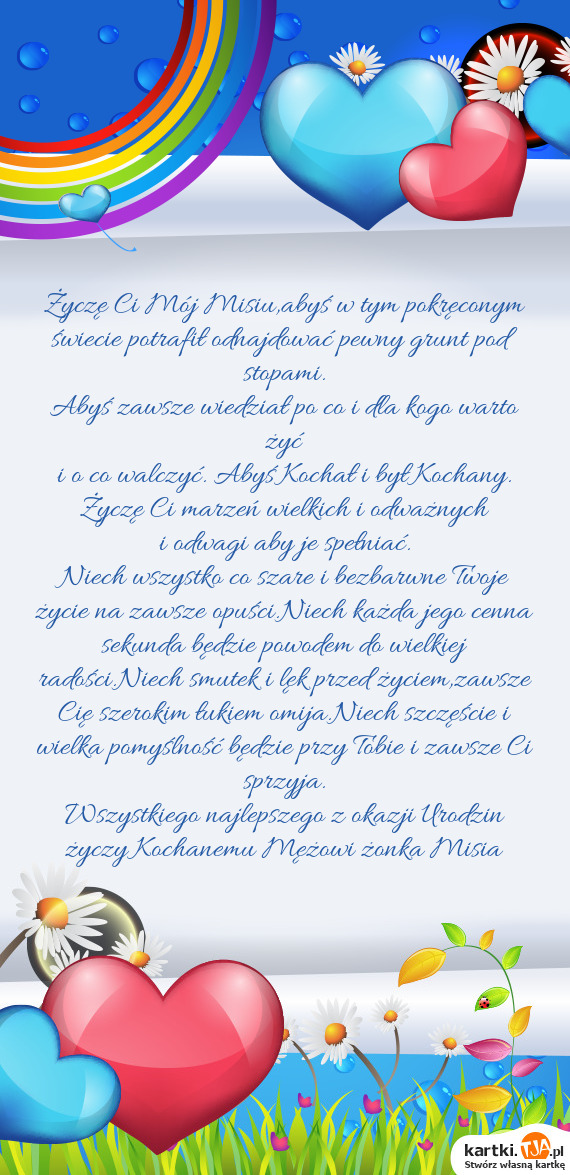 Życzę Ci Mój Misiu,abyś w tym pokręconym
świecie potrafił odnajdować pewny grunt pod
stopami.
Abyś zawsze wiedział po co i dla kogo warto
żyć
i o co walczyć. Abyś Kochał i był Kochany.
Życzę Ci marzeń wielkich i odważnych
i odwagi aby je spełniać.
Niech wszystko co szare i bezbarwne Twoje
życie na zawsze opuści.Niech każda jego cenna
sekunda będzie powodem do wielkiej
radości.Niech smutek i lęk przed życiem,zawsze
Cię szerokim łukiem omija.Niech szczęście i
wielka pomyślność będzie przy Tobie i zawsze Ci
sprzyja.
Wszystkiego najlepszego z okazji Urodzin
życzy Kochanemu Mężowi żonka Misia
kartki.TJA.pl
Stwórz własną kartkę